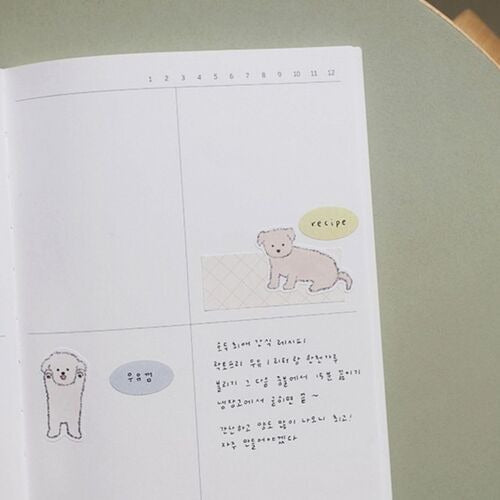 1 2 3 4 5 6 7 8 9 10 11 12
recipe
우유껌
호두 최애 간식 레시피!
락토프리 우유 1리터랑 한천가루
불리기 그 다음 중불에서 15분 끓이기
냉장고에서 굳히면 끝~
간단하고 양도 많이 나오니 최고!
자주 만들어야겠다